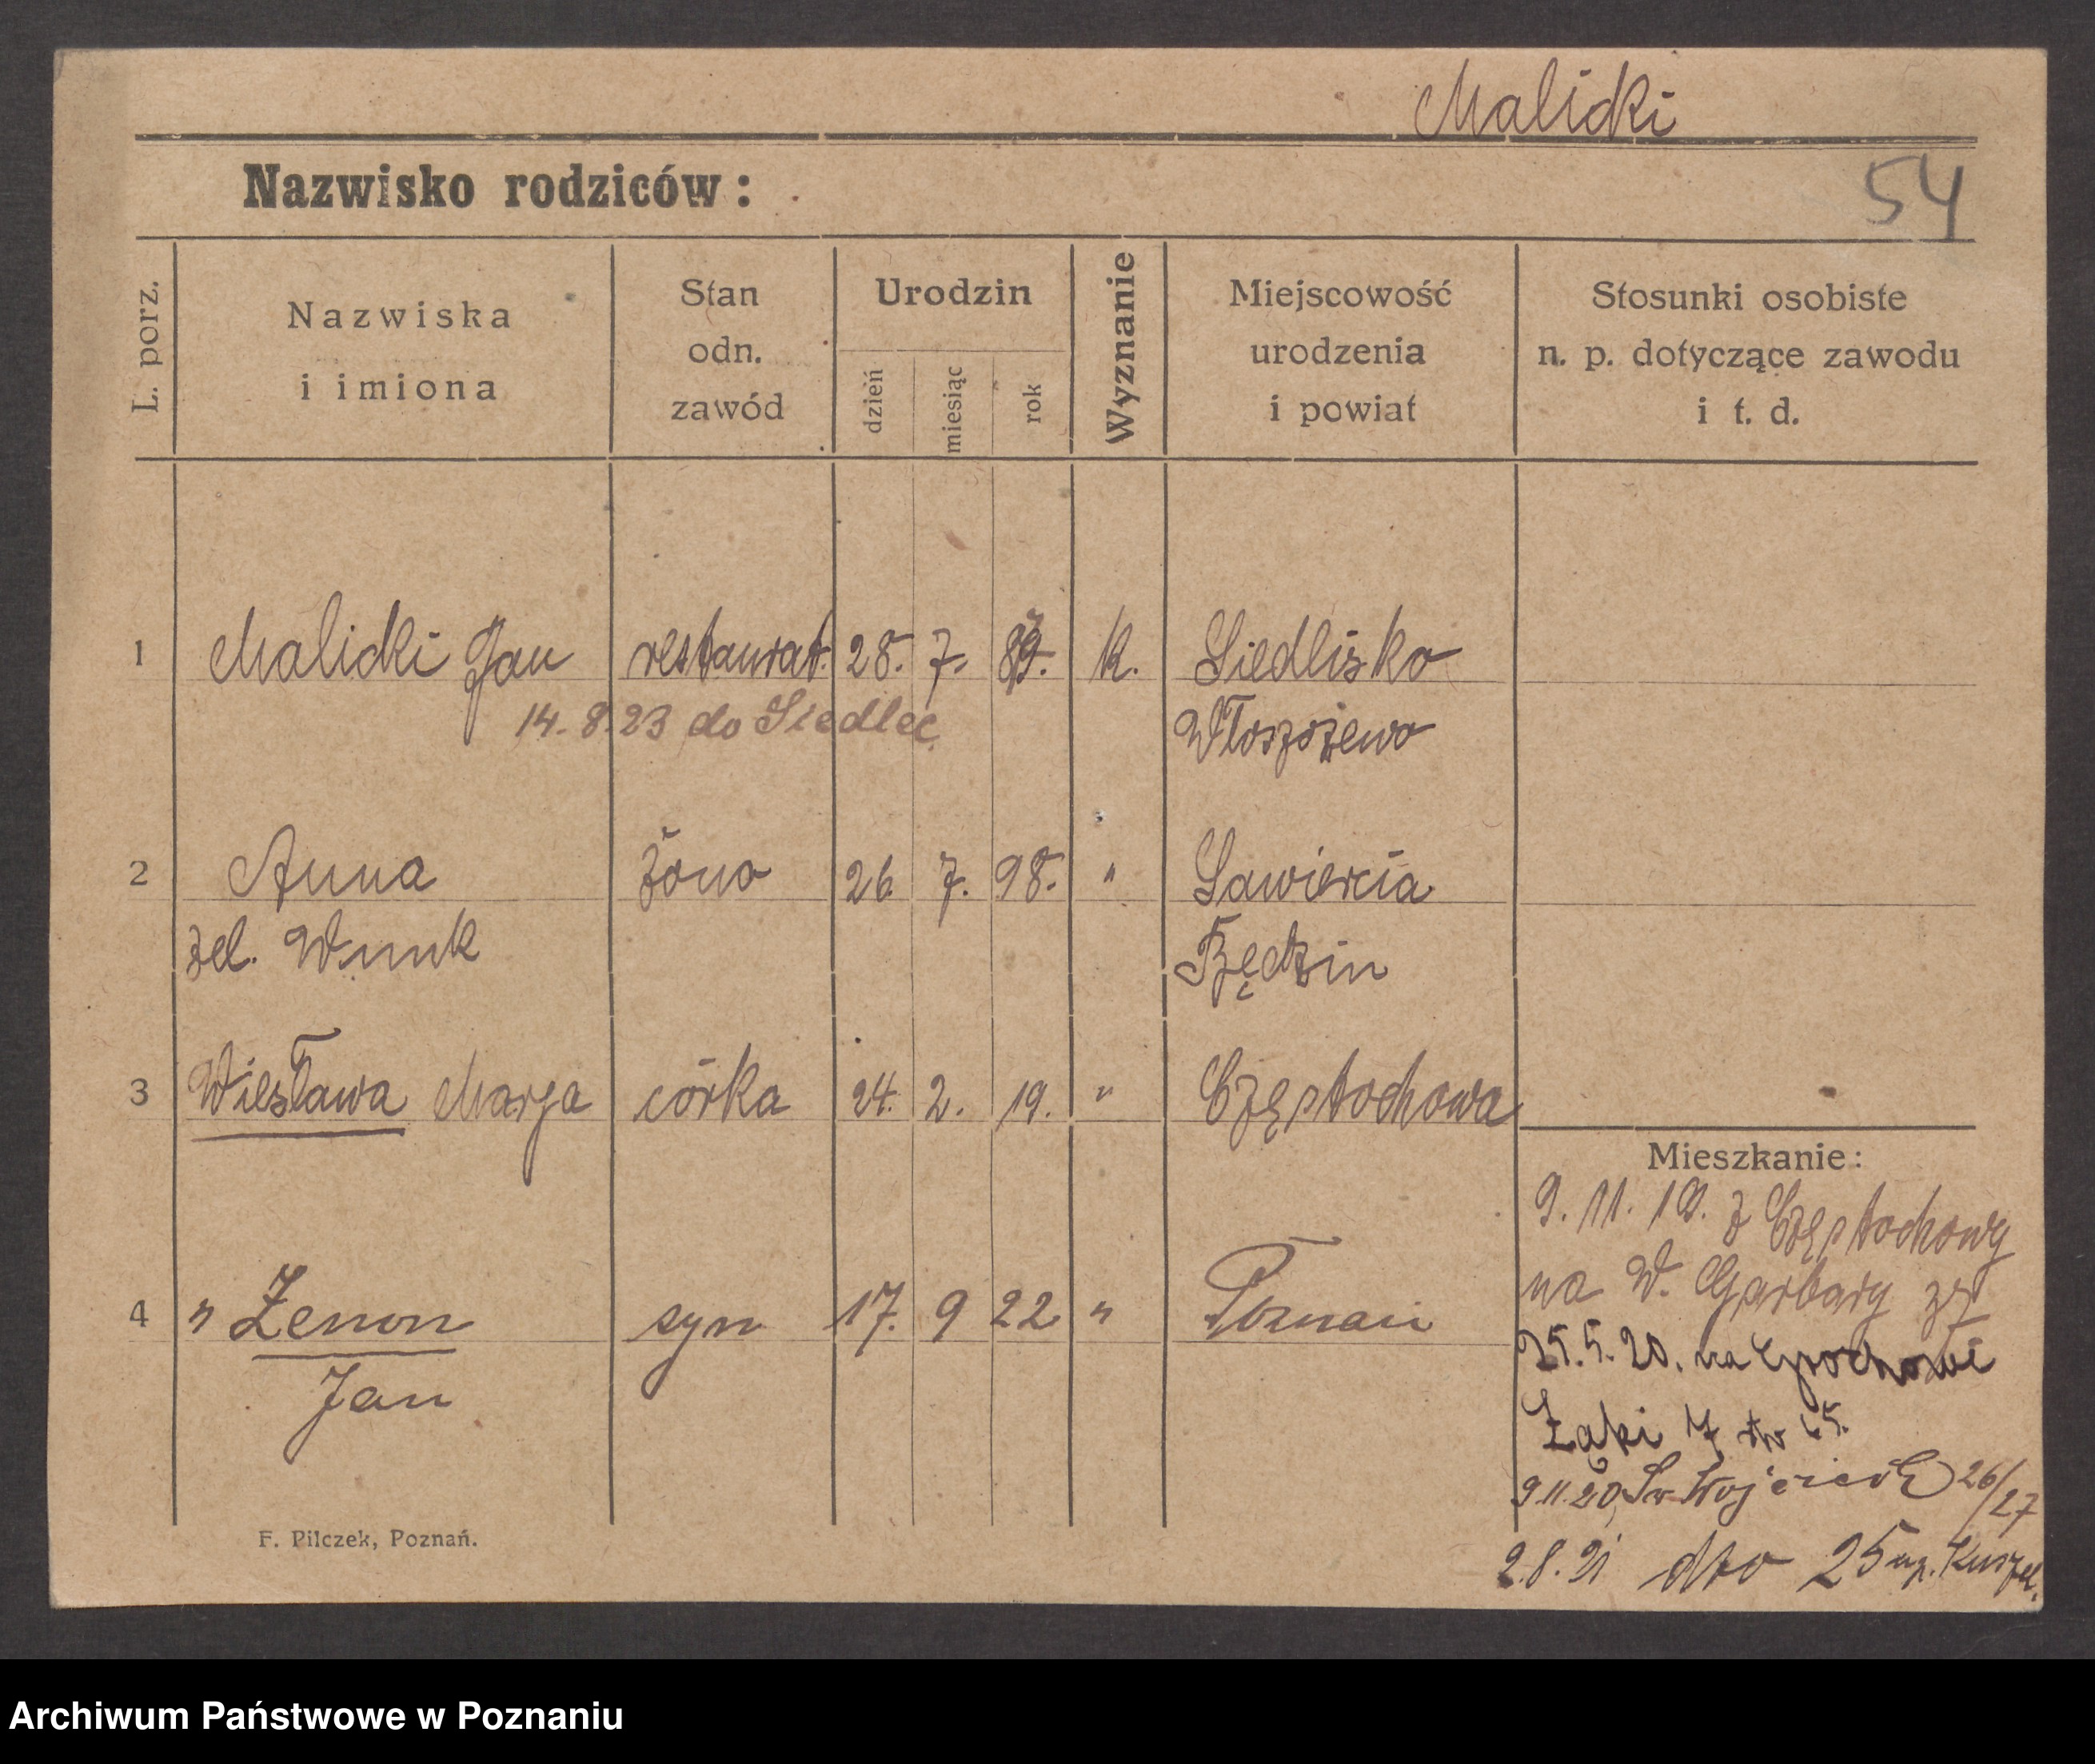 Malicki
Nazwisko rodziców:
54
L. porz.
Nazwiska
i imiona
Stan
odn.
zawód
Urodzin
dzień
miesiąc
rok
Wyznanie
Miejscowość
urodzenia
i powiat
Stosunki osobiste
n. p. dotyczące zawodu
i t. d.
1 Malicki Jan restaurat. 28. 7. k. Siedlisko
14. 8. 23 do Siedlec
2 Anna żona 26 7. 98. " Sawiercia
zel. Wnuk Będzin
3 Wiesława Marja córka 24. 2. 19. " Częstochowa
Mieszkanie:
9. 11. 19. z Częstochowy
na W. Garbary
4 " Zenon syn 17. 9 22 " Poznań
Jan
25. 5. 20. na
9.11.20 Św Wojciech 26/27
2.8.21 dto 25
F. Pilczek, Poznań.
Archiwum Państwowe w Poznaniu